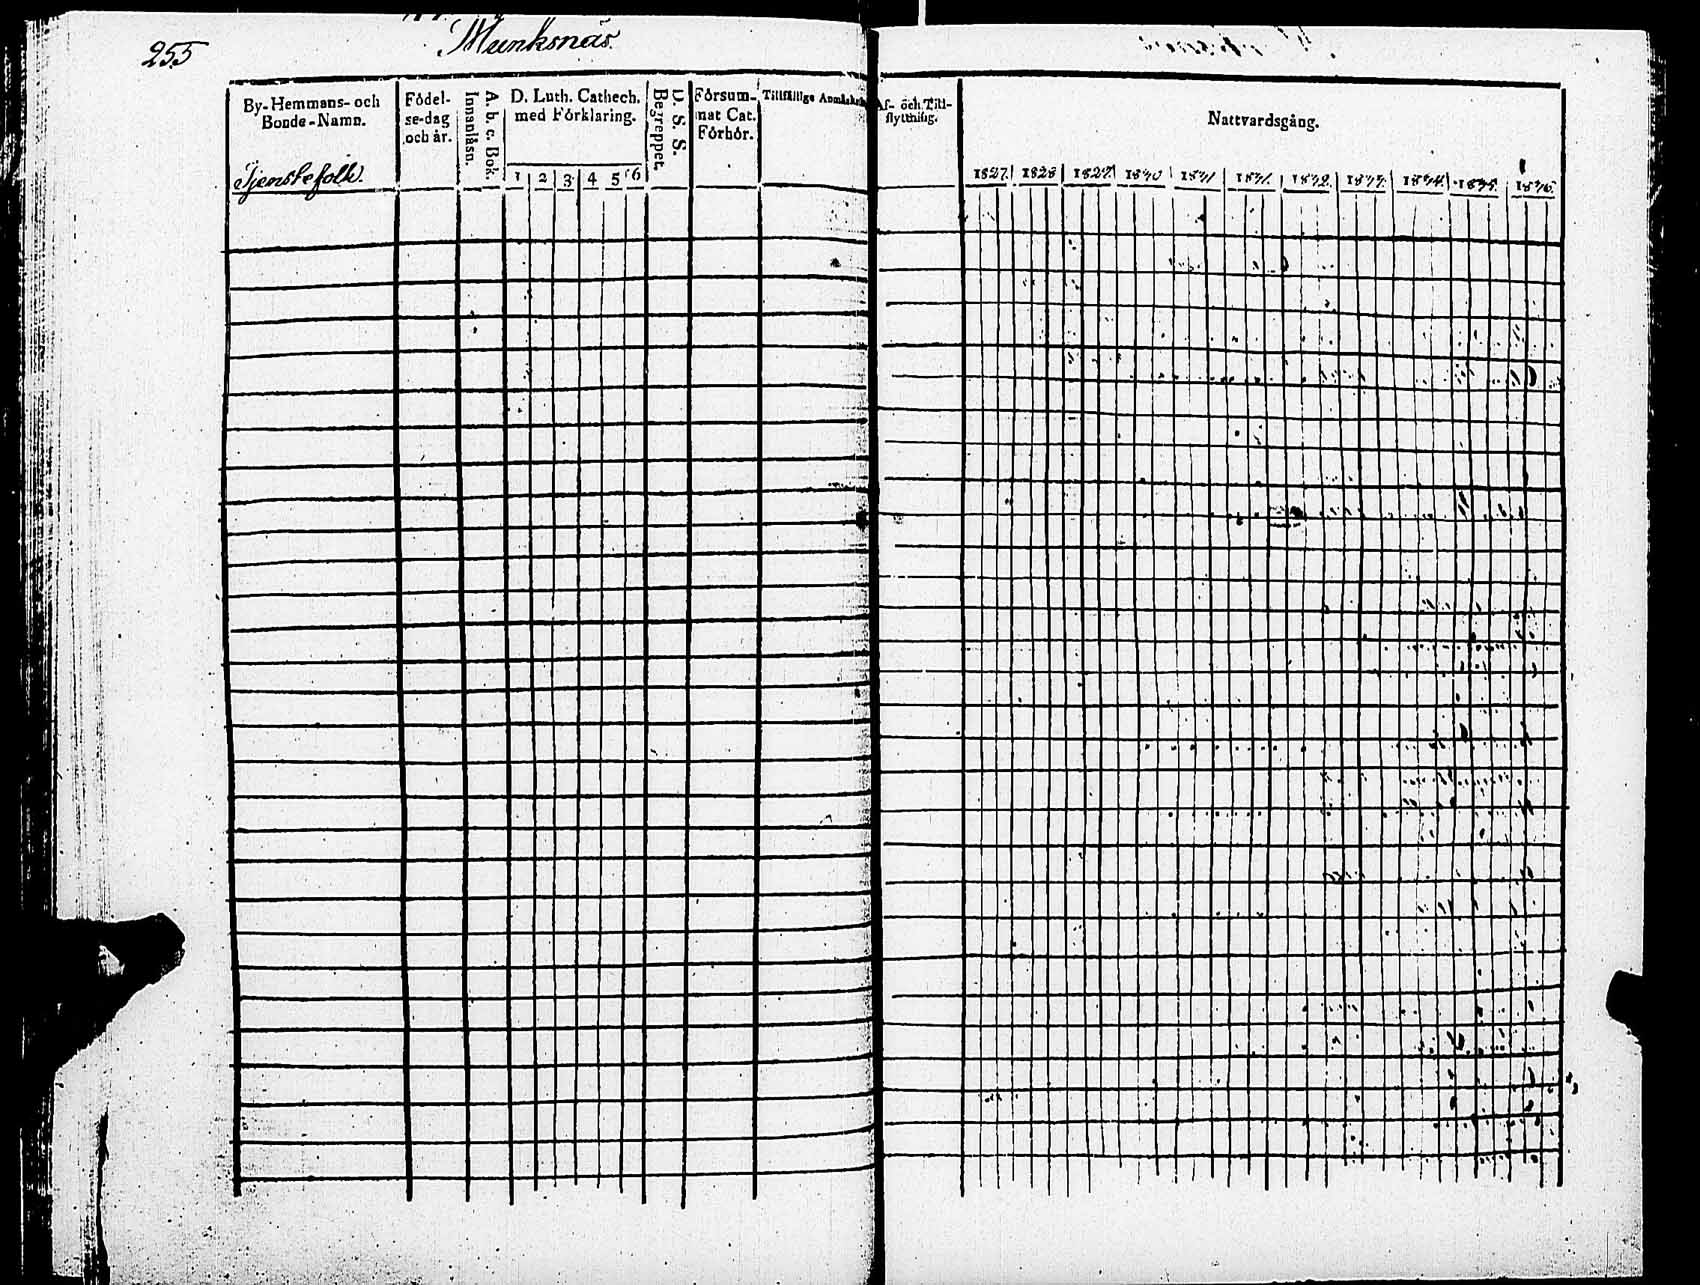 255
Munksnäs.
By-Hemmans- och
Bonde-Namn.
Födel-
se-dag
och år.
A. b. c. Bok.
Innanläsn.
D. Luth. Cathech.
med Förklaring.
1 2 3 4 5 6
D. S. S.
Begreppet.
Försum-
mat Cat.
Förhör.
Tillfällige Anmärkn
Af- och Till-
flyttning.
Nattvardsgång.
Tjenstefolk.
1827. 1828 1829. 1830 1831 1831. 1832. 1833. 1834. 1835. 1836.